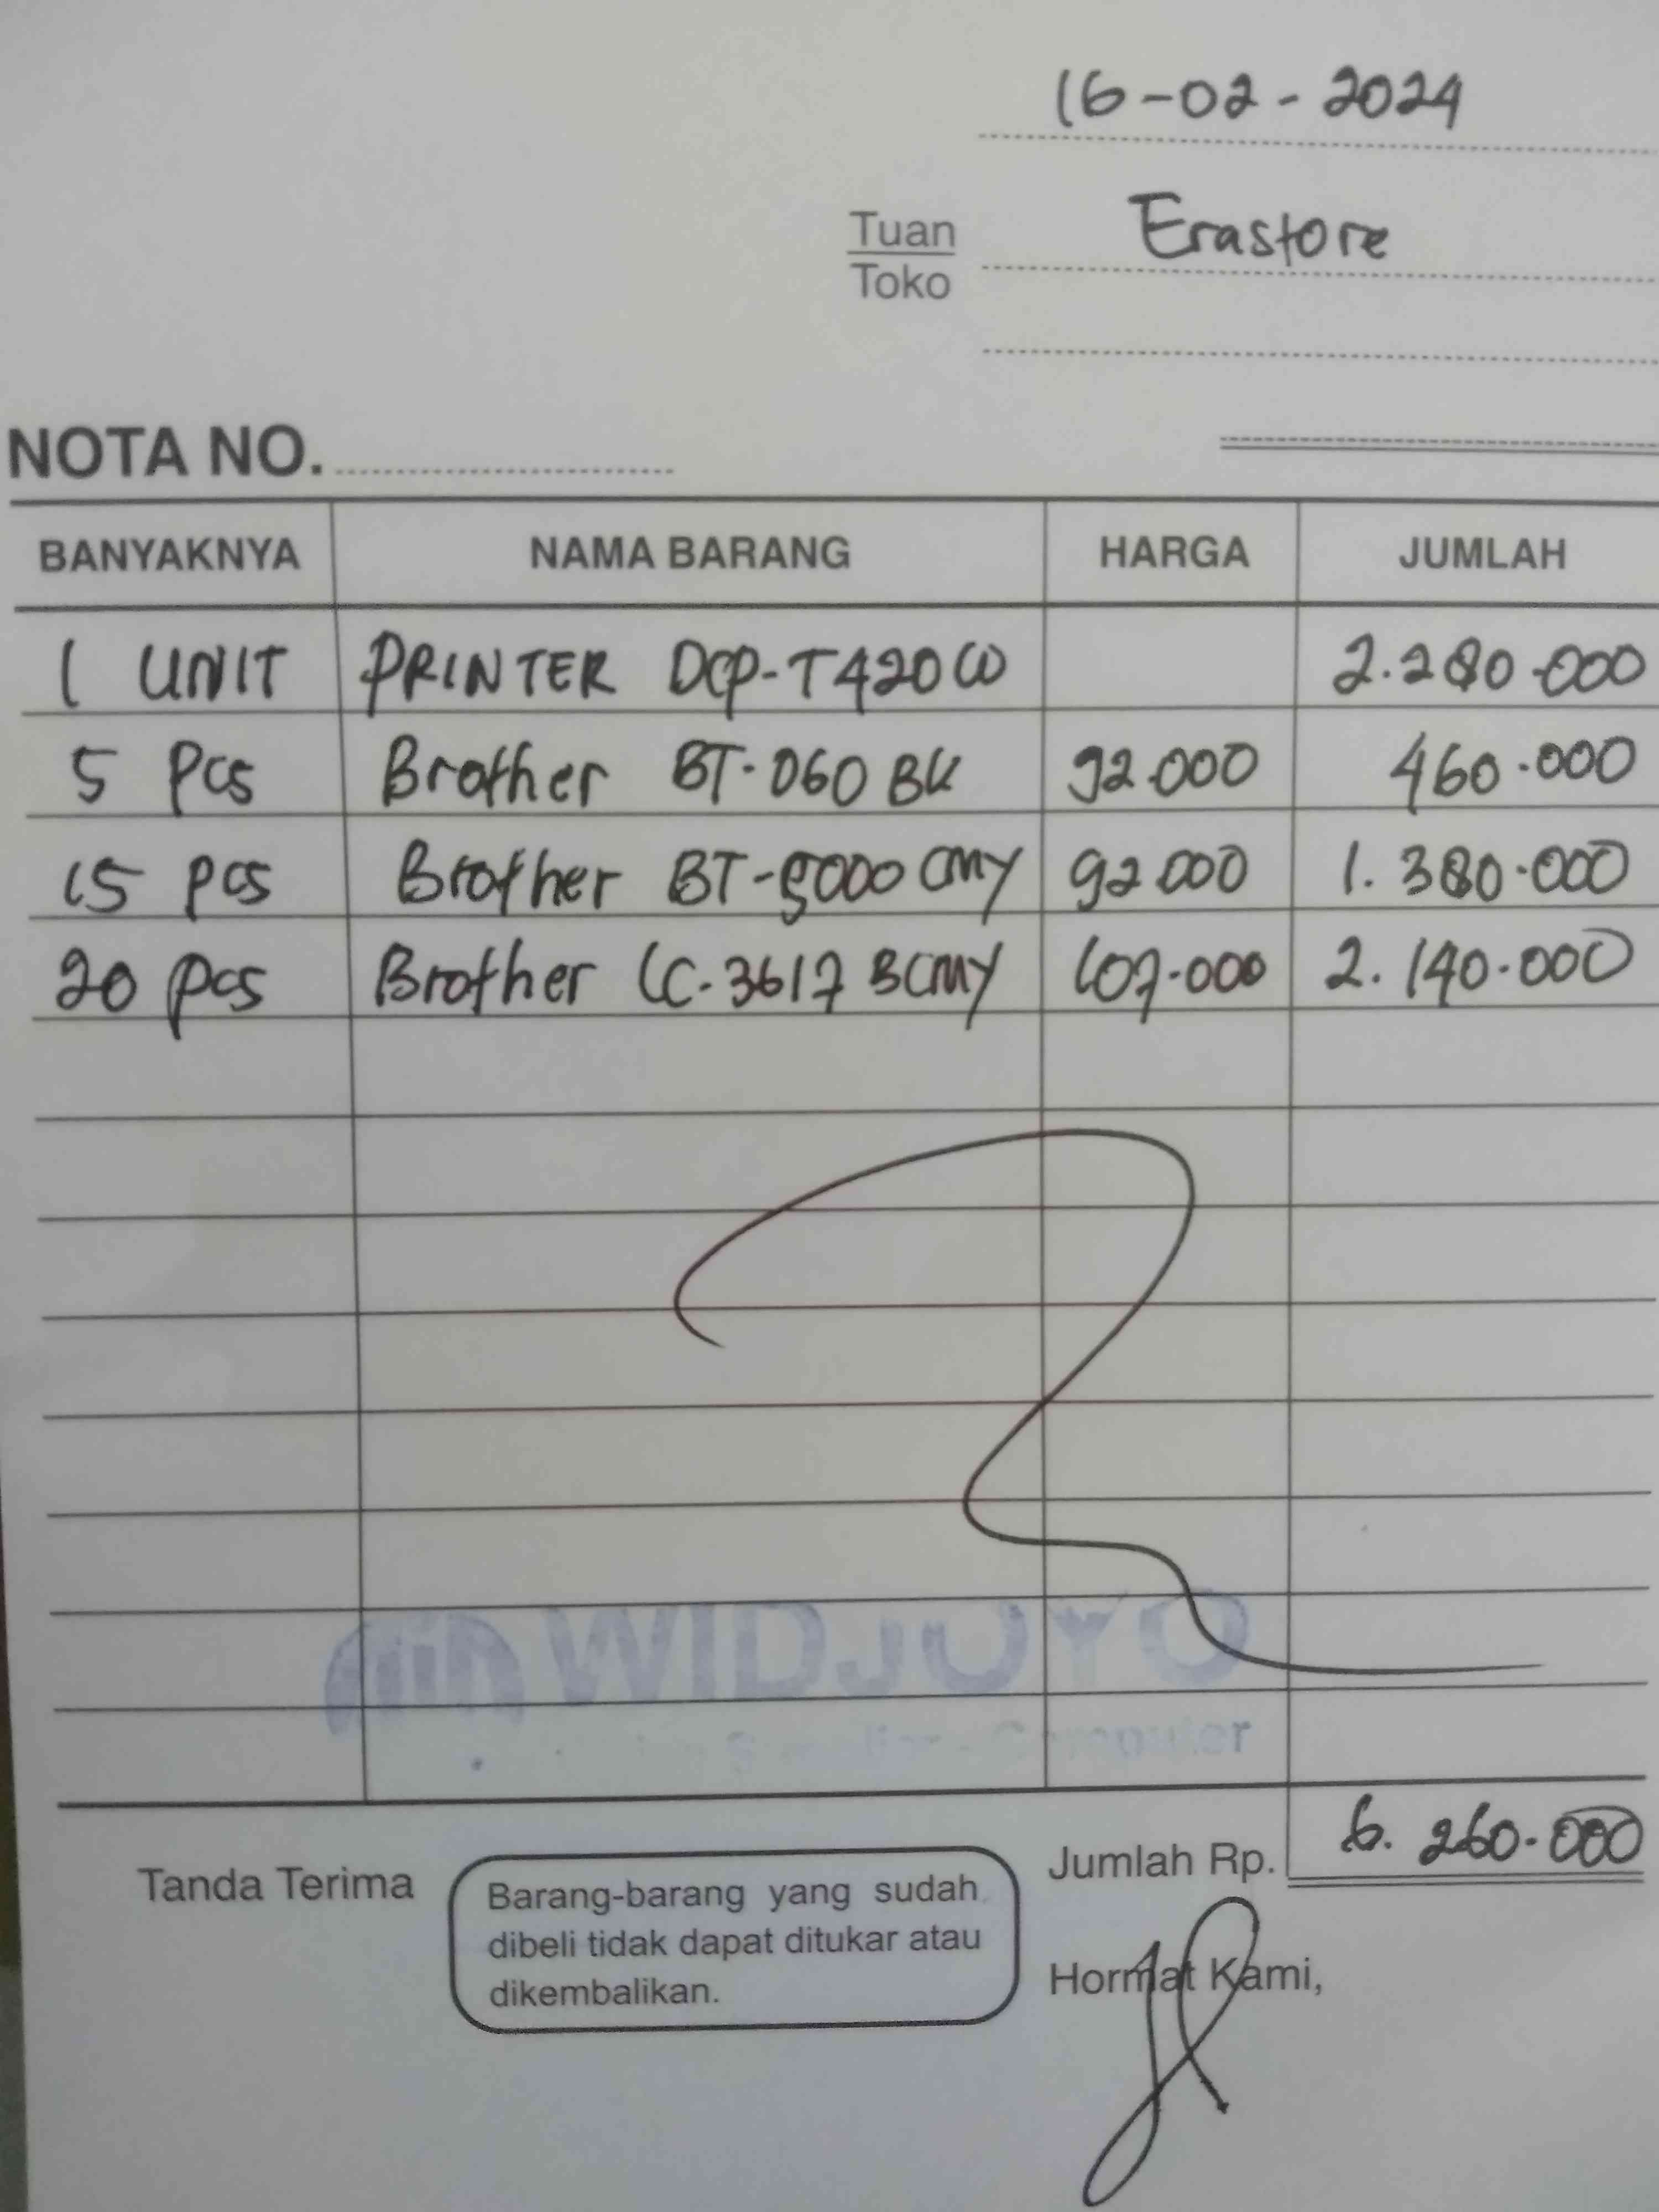 16-02-2024
Tuan
Erastore
Toko
NOTA NO.
BANYAKNYA NAMA BARANG HARGA JUMLAH
1 UNIT PRINTER DCP-T420W 2.280.000
5 Pcs Brother BT-D60 BK 92.000 460.000
15 pcs Brother BT-5000 CMY 92.000 1.380.000
20 pcs Brother LC-3617 BCMY 107.000 2.140.000
WIDJOYO
Computer
Jumlah Rp. 6.260.000
Tanda Terima
Barang-barang yang sudah
dibeli tidak dapat ditukar atau
dikembalikan.
Hormat Kami,